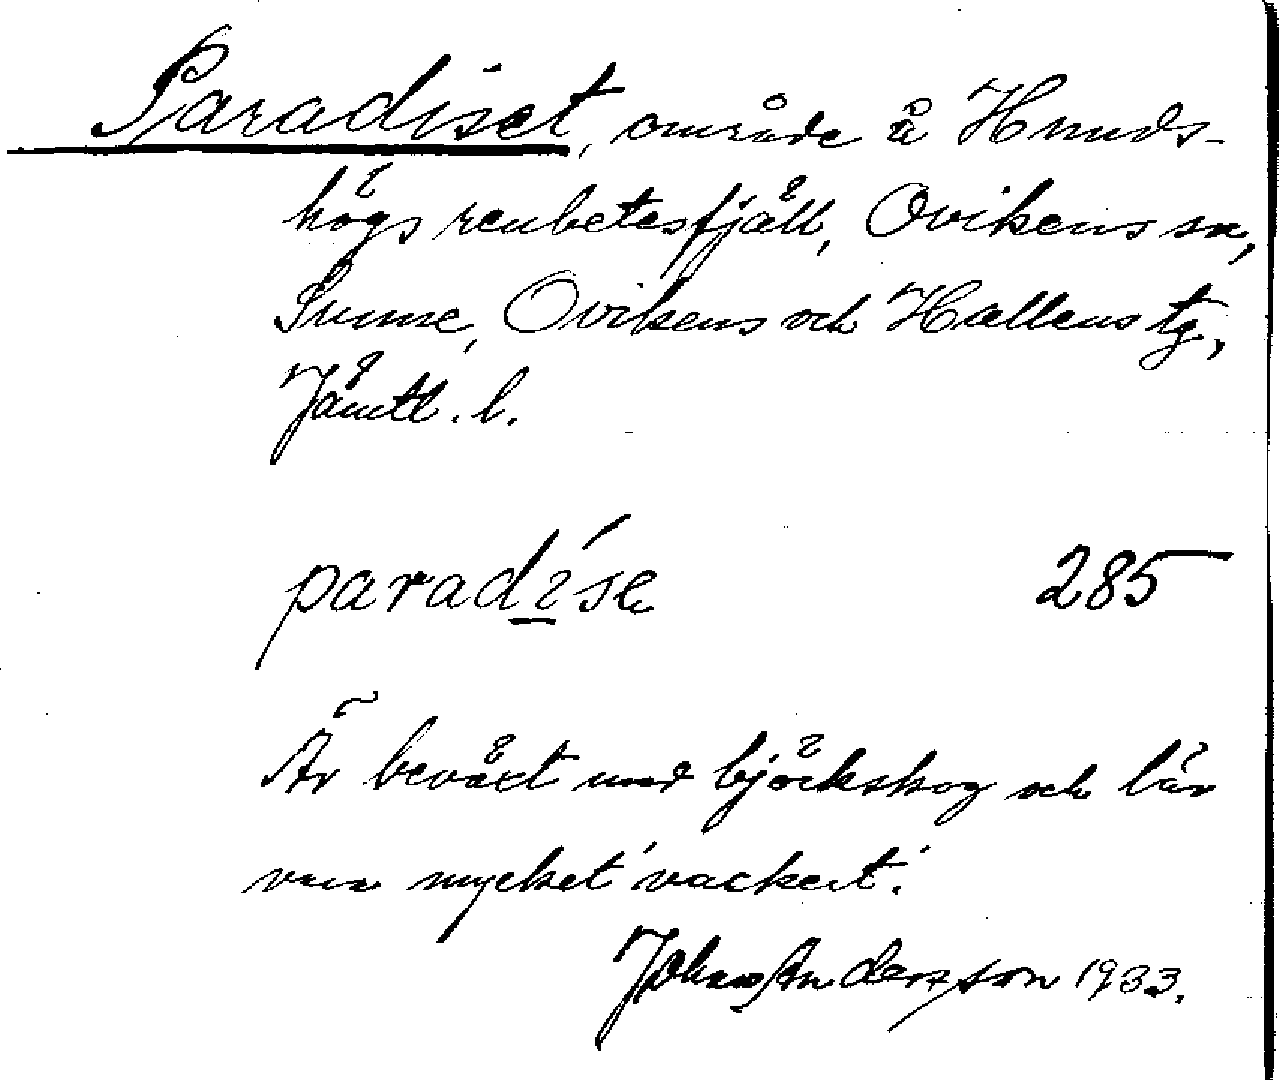 Paradiset, område å Hunds-
högs renbetesfjäll, Ovikens sn,
Sunne, Ovikens och Hallens tg,
Jämtl. l.
paradí̲se 285
Är beväxt med björkskog och lär
vara mycket 'vackert'.
Johans Andersson 1933.